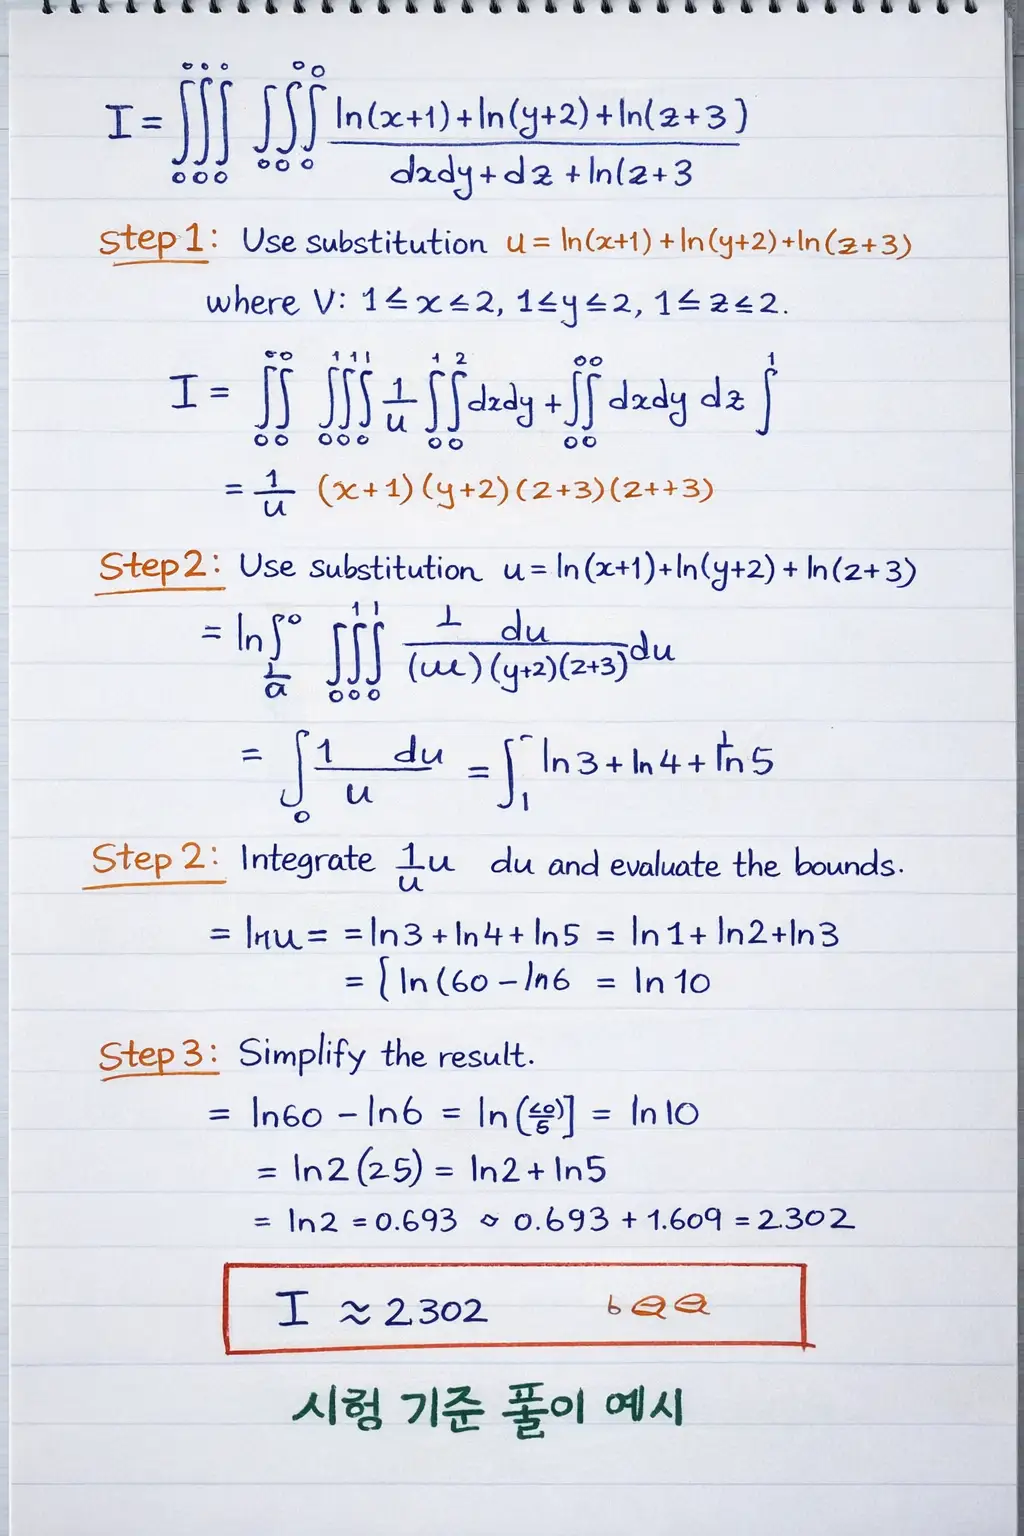 I = ∫∫∫ ∫∫∫ ln(x+1)+ln(y+2)+ln(z+3)
dxdy+dz+ln(z+3
Step 1: Use substitution u = ln(x+1)+ln(y+2)+ln(z+3)
where V: 1≤x≤2, 1≤y≤2, 1≤z≤2.
I = ∫∫ ∫∫∫ 1/u ∫∫ dxdy + ∫∫ dxdy dz ∫
= 1/u (x+1)(y+2)(2+3)(2++3)
Step 2: Use substitution u = ln(x+1)+ln(y+2)+ln(z+3)
= ln ∫ ∫∫∫ 1 du / (y+2)(z+3) du
= ∫ 1 du / u = ∫ ln3+ln4+ln5
Step 2: Integrate 1/u u du and evaluate the bounds.
= lnu = = ln3+ln4+ln5 = ln1+ln2+ln3
= { ln(60 – ln6 = ln10
Step 3: Simplify the result.
= ln60 – ln6 = ln( ] = ln10
= ln2(25) = ln2+ln5
= ln2 = 0.693 0.693+1.609=2.302
I ≈ 2.302
시험 기준 풀이 예시